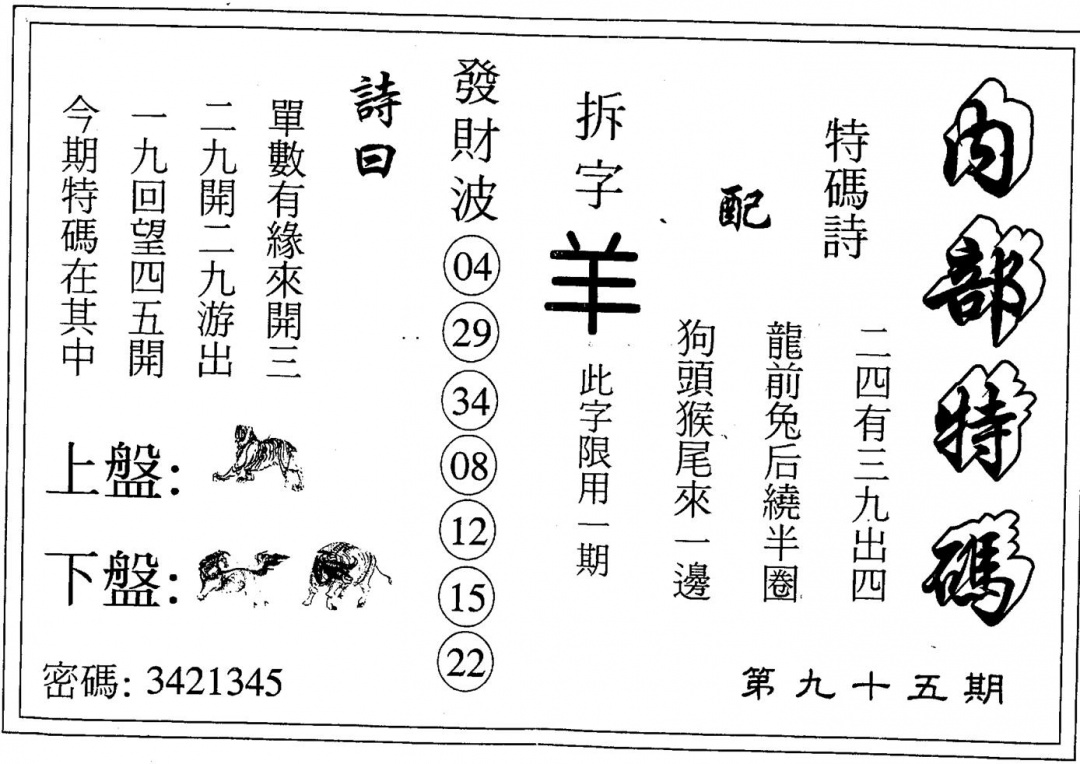 內部特碼
第九十五期
特碼詩
二四有三九出四
配
龍前兔后繞半圈
狗頭猴尾來一邊
拆字
羊
此字限用一期
發財波
04
29
34
08
12
15
22
詩曰
單數有緣來開三
二九開二九游出
一九回望四五開
今期特碼在其中
上盤:
下盤:
密碼: 3421345